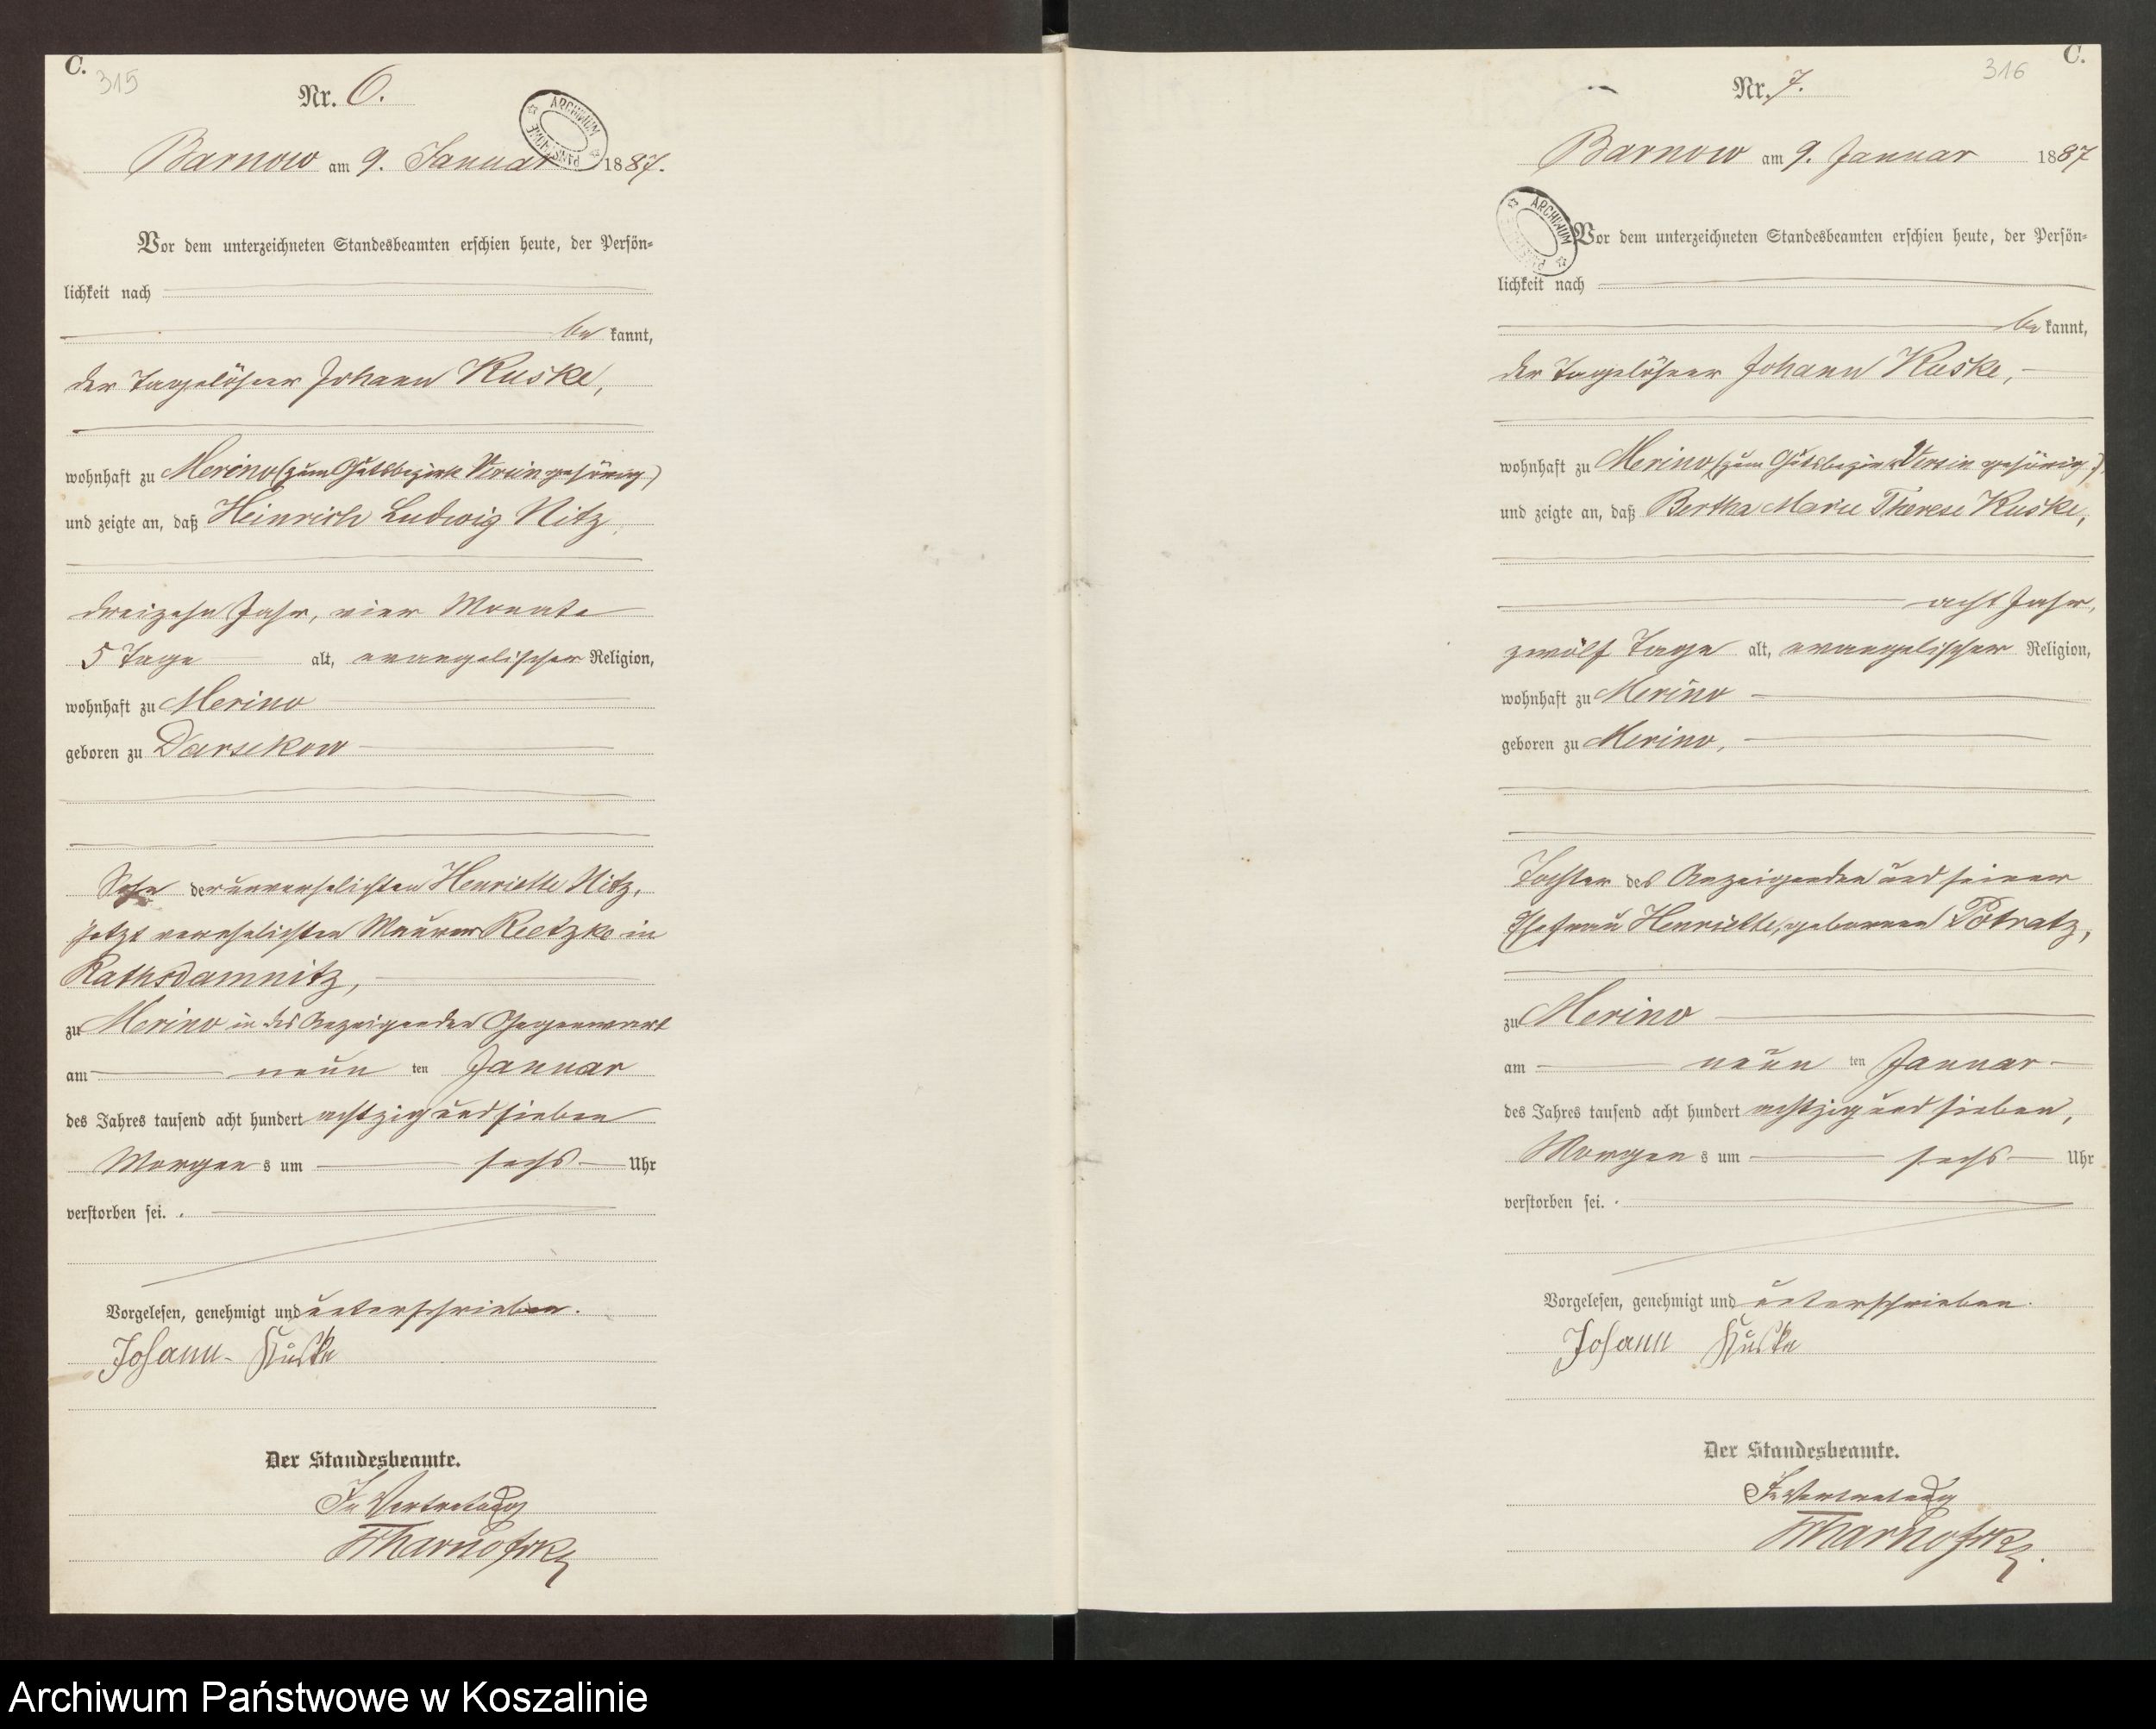 C.
315
Nr. 6.
ARCHIWUM PAŃSTWOWE
Barnow am 9. Januar 1887.
Vor dem unterzeichneten Standesbeamten erschien heute, der Persön=
lichkeit nach
be kannt,
der Tagelöhner Johann Kuske,
wohnhaft zu Merino (zum Gutsbezirk Versin gehörig)
und zeigte an, daß Heinrich Ludwig Nitz,
dreizehn Jahr, vier Monate
5 Tage alt, evangelischer Religion,
wohnhaft zu Merino
geboren zu Darsekow
Sohn der unverehelichten Henriette Nitz,
jetzt verehelichten Maurer Rietzke in
Rathsdamnitz,
zu Merino in des Anzeigenden Gegenwart
am neun ten Januar
des Jahres tausend acht hundert achtzig und sieben
Morgen s um sechs Uhr
verstorben sei.
Vorgelesen, genehmigt und unterschrieben.
Johann Kuske
Der Standesbeamte.
In Vertretung
C.
316
Nr. 7.
Barnow am 9. Januar 1887
ARCHIWUM
Vor dem unterzeichneten Standesbeamten erschien heute, der Persön=
lichkeit nach
be kannt,
der Tagelöhner Johann Kuske,
wohnhaft zu Merino (zum Gutsbezirk Versin gehörig),
und zeigte an, daß Bertha Marie Therese Kuske,
acht Jahr,
zwölf Tage alt, evangelischer Religion,
wohnhaft zu Merino
geboren zu Merino,
Tochter des Anzeigenden und seiner
Ehefrau Henriette, geborenen Potratz,
zu Merino
am neun ten Januar
des Jahres tausend acht hundert achtzig und sieben,
Morgen s um sechs Uhr
verstorben sei.
Vorgelesen, genehmigt und unterschrieben.
Johann Kuske
Der Standesbeamte.
In Vertretung
Archiwum Państwowe w Koszalinie